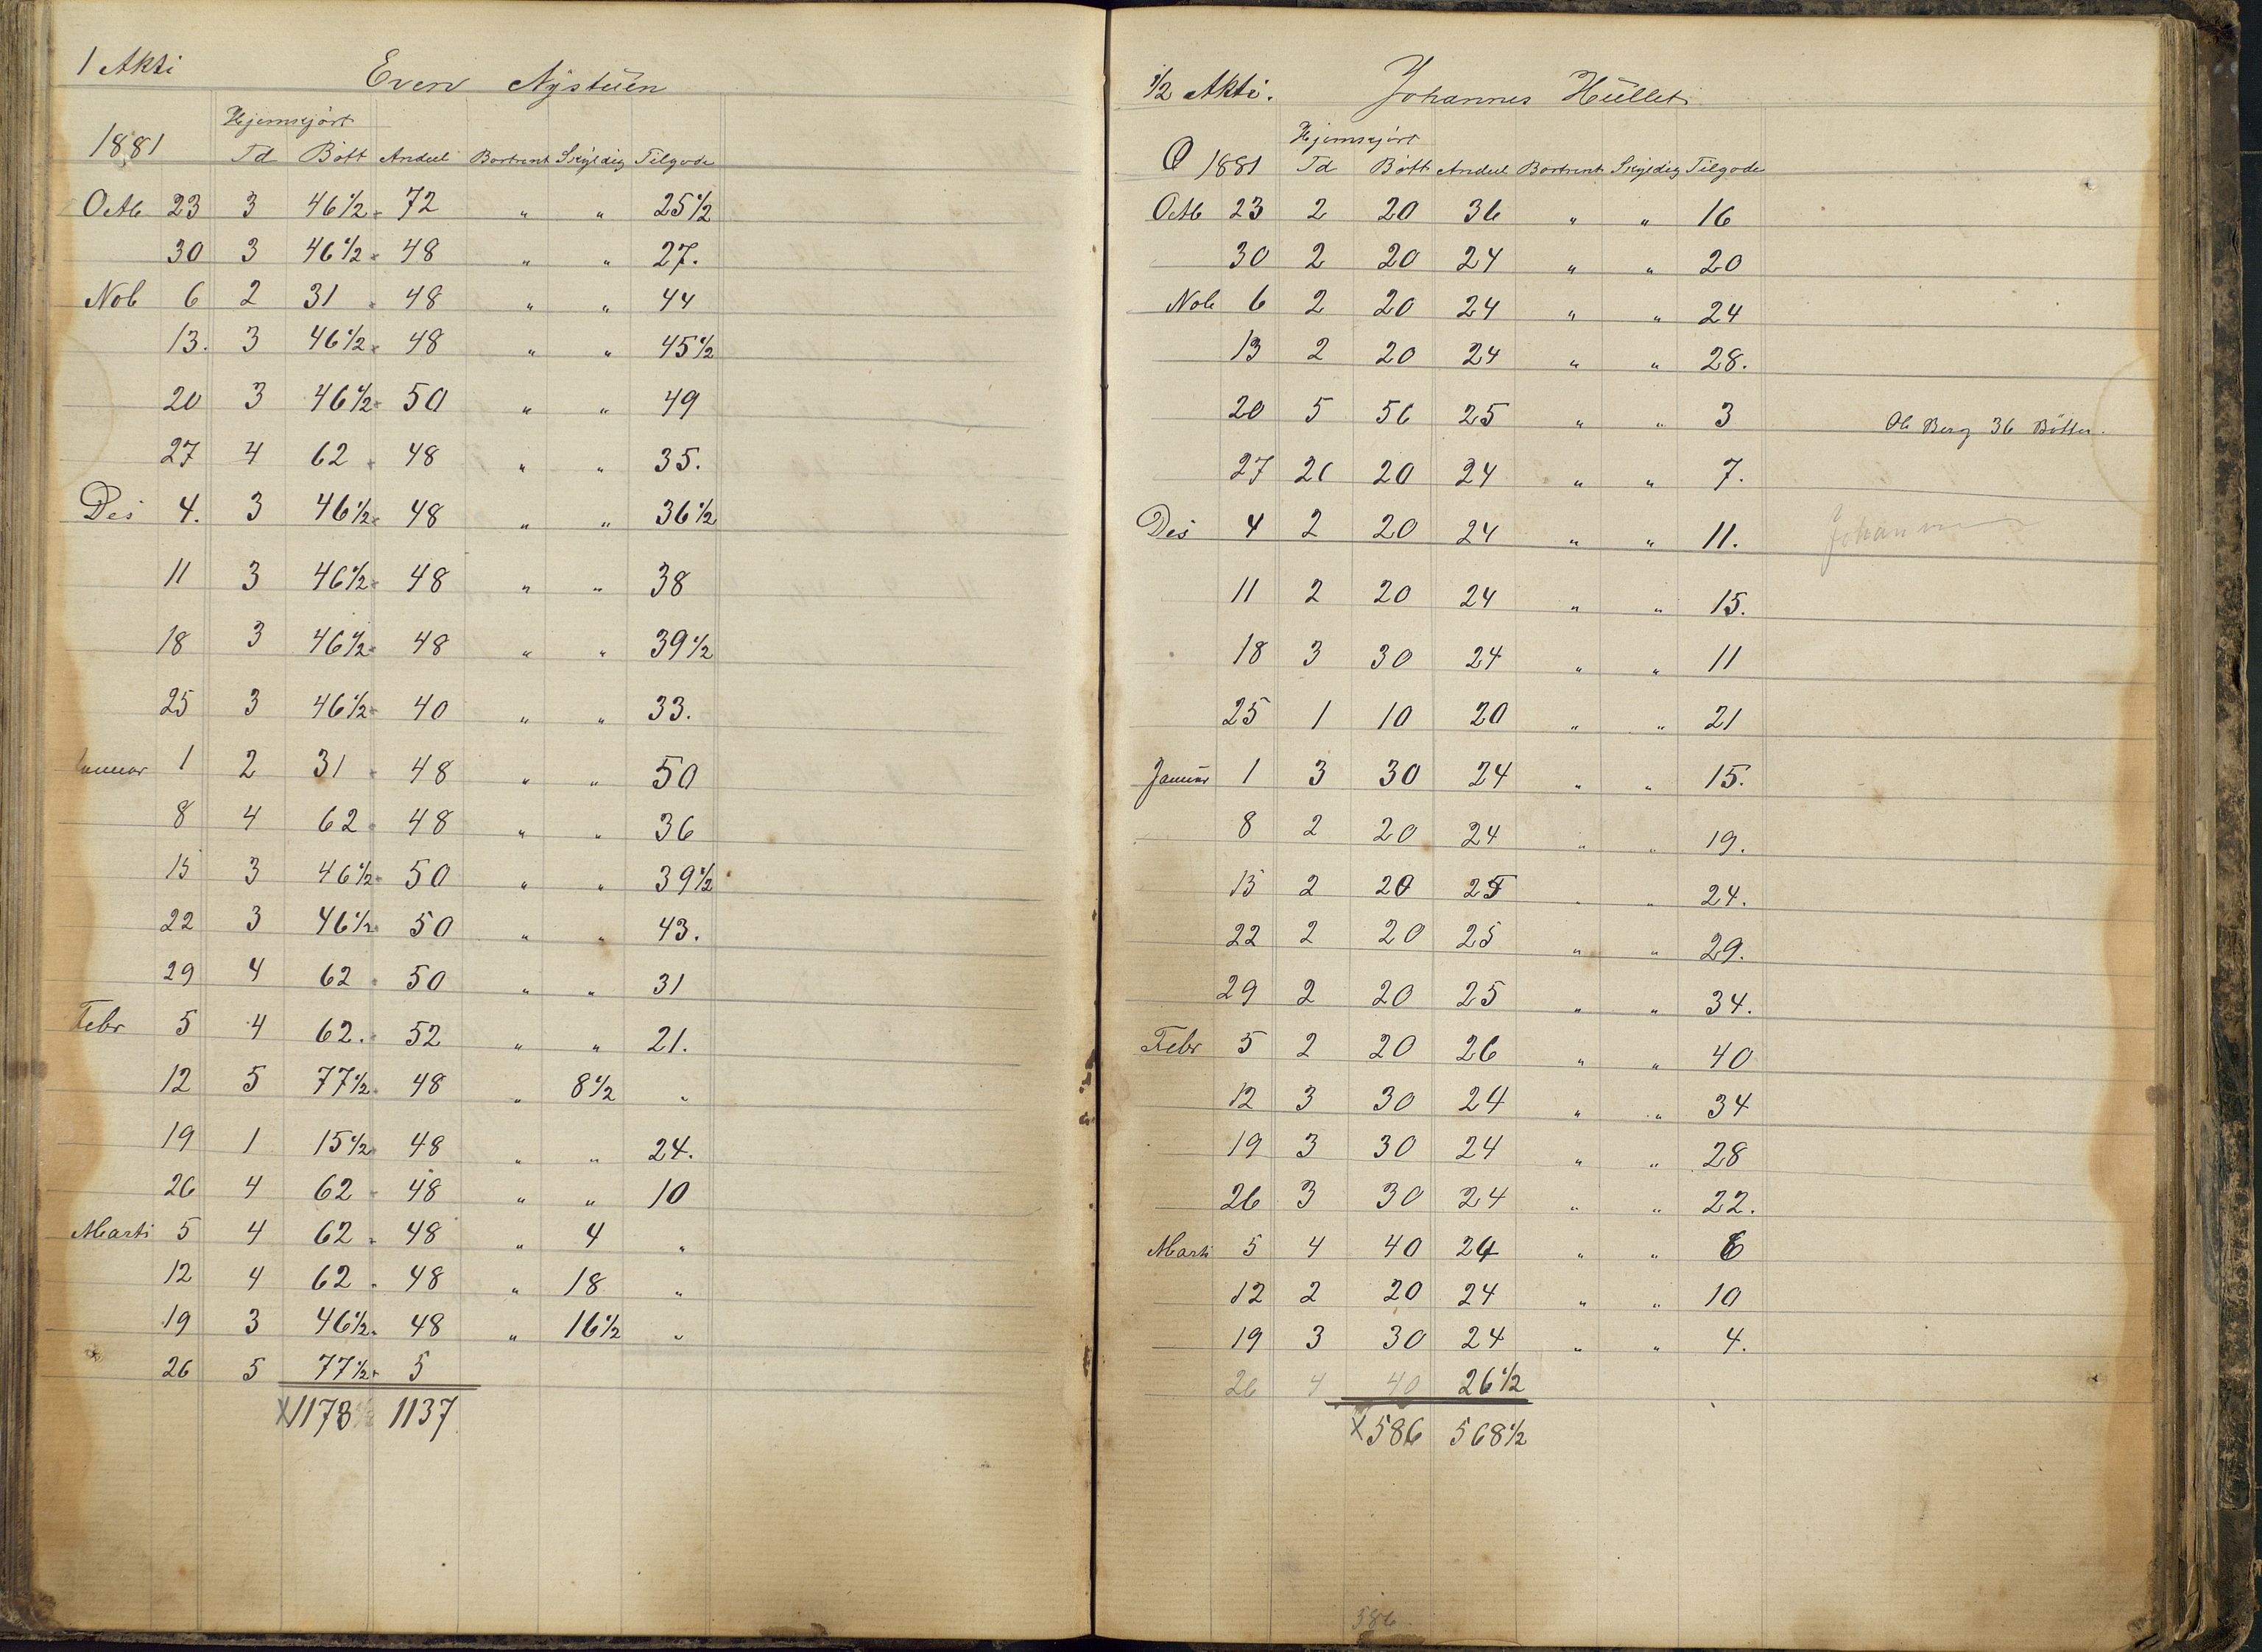 1 Akti
Even Nÿstüen
Hjemkjört
1881 Td Bött Andeel Bortrent Skÿldig Tilgode
Octb 23 3 46 1/2 72 " " 25 1/2
30 3 46 1/2 48 " " 27.
Nob 6 2 31 48 " " 44
13. 3 46 1/2 48 " " 45 1/2
20 3 46 1/2 50 " " 49
27 4 62 48 " " 35.
Des 4. 3 46 1/2 48 " " 36 1/2
11 3 46 1/2 48 " " 38
18 3 46 1/2 48 " " 39 1/2
25 3 46 1/2 40 " " 33.
Januar 1 2 31 48 " " 50
8 4 62 48 " " 36
15 3 46 1/2 50 " " 39 1/2
22 3 46 1/2 50 " " 43.
29 4 62 50 " " 31
Febr 5 4 62. 52 " " 21.
12 5 77 1/2 48 " 8 1/2 "
19 1 15 1/2 48 " " 24.
26 4 62 48 " " 10
Marti 5 4 62 48 " 4 "
12 4 62 48 " 18 "
19 3 46 1/2 48 " 16 1/2 "
26 5 77 1/2 5
X1178 1/2 1137
1/2 Akti. Johannes Hüllet
Hjemkjört
O 1881 Td Bött Andeel Bortrent Skÿldig Tilgode
Octb 23 2 20 36 " " 16
30 2 20 24 " " 20
Nob 6 2 20 24 " " 24
13 2 20 24 " " 28.
20 5 56 25 " " 3 Ol Berg 36 Bötter.
27 2 20 24 " " 7.
Des 4 2 20 24 " " 11. Johann
11 2 20 24 " " 15.
18 3 30 24 " " 11
25 1 10 20 " " 21
Januar 1 3 30 24 " " 15.
8 2 20 24 " " 19.
15 2 20 25 " " 24.
22 2 20 25 " " 29.
29 2 20 25 " " 34.
Febr 5 2 20 26 " " 40
12 3 30 24 " " 34
19 3 30 24 " " 28
26 3 30 24 " " 22.
Marti 5 4 40 24 " " 6
12 2 20 24 " " 10
19 3 30 24 " " 4.
26 4 40 26 1/2
X586 568 1/2
586